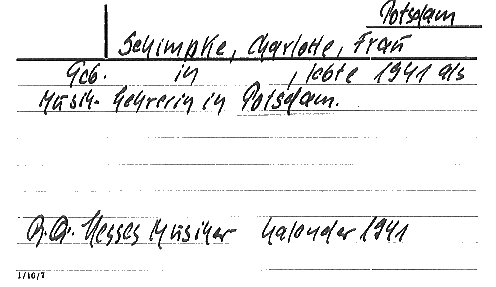 Potsdam
Schimpke, Charlotte, Frau
Geb. in , lebte 1941 als
Musik-Lehrerin in Potsdam.
Hesses Musiker Kalender 1941
1/10/7